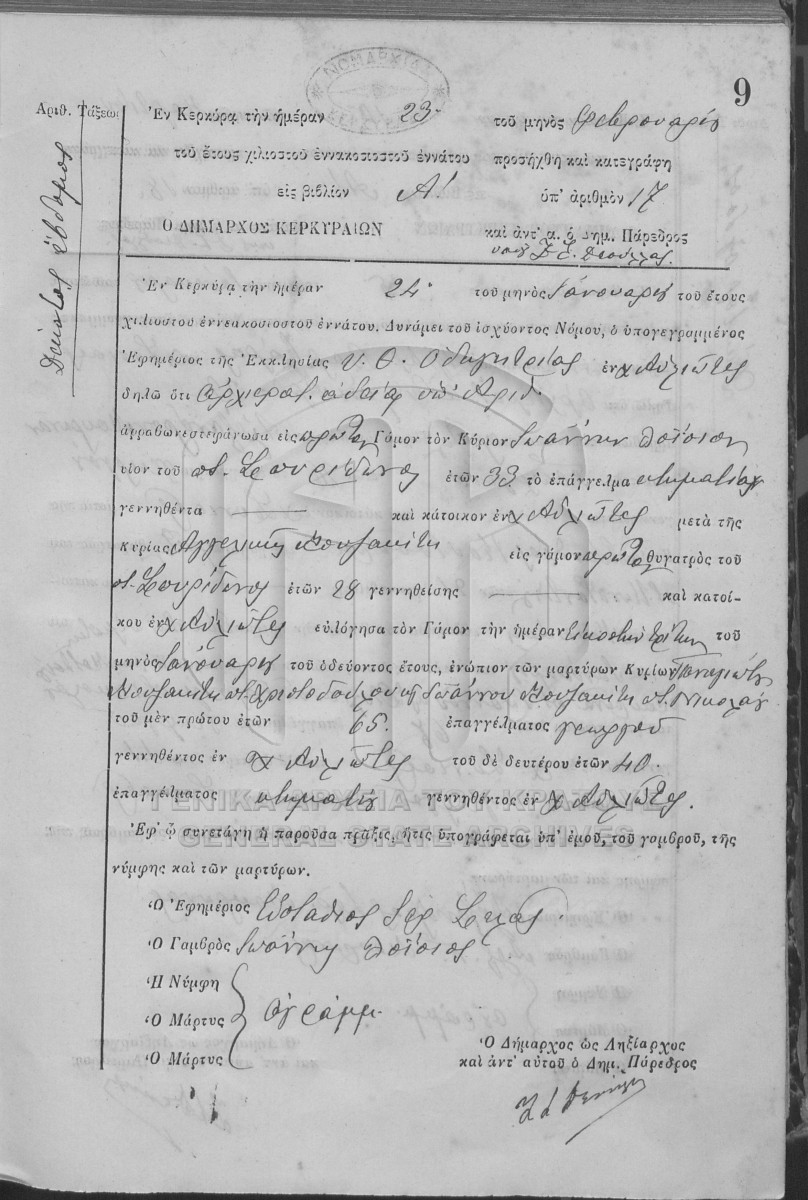 9
ΝΟΜΑΡΧΙΑ
Αριθ. Τάξεως
Δέκατος έβδομος
Ἐν Κερκύρᾳ τὴν ἡμέραν 23 τοῦ μηνὸς Φεβρουαρίου
τοῦ ἔτους χιλιοστοῦ ἐννακοσιοστοῦ ἐννάτου προσήχθη καὶ κατεγράφη
εἰς βιβλίον Α! ὑπ' ἀριθμὸν 17
Ο ΔΗΜΑΡΧΟΣ ΚΕΡΚΥΡΑΙΩΝ καὶ ἀντ' α. ὁ Δημ. Πάρεδρος
Ἐν Κερκύρᾳ τὴν ἡμέραν 24 τοῦ μηνὸς Ἰανουαρίου τοῦ ἔτους
χιλιοστοῦ ἐννεακοσιοστοῦ ἐννάτου. Δυνάμει τοῦ ἰσχύοντος Νόμου, ὁ ὑπογεγραμμένος
Ἐφημέριος τῆς Ἐκκλησίας Υ. Θ. Ὁδηγητρίας ἐν χ Αὐλιῶτες
δηλῶ ὅτι ἀρχιερατ. ἀδείᾳ ὑπ' Ἀριθ.
ἀρραβωνεστεφάνωσα εἰς πρῶτον Γάμον τὸν Κύριον Ἰωάννην
υἱὸν τοῦ π. Σπυρίδωνος ἐτῶν 33 τὸ ἐπάγγελμα κτηματίαν
γεννηθέντα — καὶ κάτοικον ἐν χ Αὐλιῶτες μετὰ τῆς
Κυρίας Ἀγγελικῆς Κουζακίτη εἰς γάμον πρῶτον θυγατρὸς τοῦ
π. Σπυρίδωνος ἐτῶν 28 γεννηθείσης — καὶ κατοί-
κου ἐν χ Αὐλιῶτες εὐλόγησα τὸν Γάμον τὴν ἡμέραν εἰκοστὴν τρίτην τοῦ
μηνὸς Ἰανουαρίου τοῦ ὁδεύοντος ἔτους, ἐνώπιον τῶν μαρτύρων Κυρίων Παναγιώτου
Κουζακίτη π. Χριστοδούλου καὶ Ἰωάννου Κουζακίτη π. Νικολάου
τοῦ μὲν πρώτου ἐτῶν 65. ἐπαγγέλματος γεωργοῦ
γεννηθέντος ἐν χ Αὐλιῶτες τοῦ δὲ δευτέρου ἐτῶν 40.
ἐπαγγέλματος κτηματίου γεννηθέντος ἐν χ Αὐλιῶτες.
ΓΕΝΙΚΑ ΑΡΧΕΙΑ ΤΟΥ ΚΡΑΤΟΥΣ
GENERAL STATE ARCHIVES
Ἐφ' ᾧ συνετάγη ἡ παροῦσα πρᾶξις, ἥτις ὑπογράφεται ὑπ' ἐμοῦ, τοῦ γαμβροῦ, τῆς
νύμφης καὶ τῶν μαρτύρων.
Ὁ Ἐφημέριος Εὐστάθιος Ἱερ.
Ὁ Γαμβρὸς Ἰωάννης
Ἡ Νύμφη
Ὁ Μάρτυς ἀγράμμ.
Ὁ Μάρτυς
Ὁ Δήμαρχος ὡς Ληξίαρχος
καὶ ἀντ' αὐτοῦ ὁ Δημ. Πάρεδρος